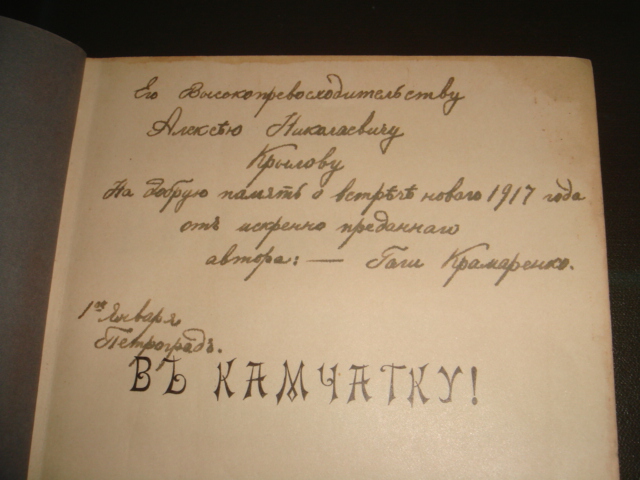 Его Высокопревосходительству
Алексѣю Николаевичу
Крылову
На добрую память о встрѣчѣ новаго 1917 года
отъ искренно преданнаго
автора: — Гаши Крамаренко.
1го Января
Петроградъ.
ВЪ КАМЧАТКУ!